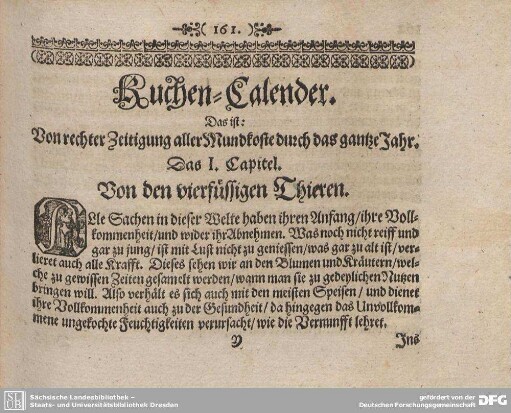 ( 161. )
Kuchen-Calender.
Das ist:
Von rechter Zeitigung aller Mundkoste durch das gantze Jahr.
Das I. Capitel.
Von den vierfüssigen Thieren.
ALle Sachen in dieser Welte haben ihren Anfang/ ihre Voll-
kommenheit/ und wider ihr Abnehmen. Was noch nicht reiff und
gar zu jung/ ist mit Lust nicht zu geniessen/ was gar zu alt ist/ ver-
lieret auch alle Krafft. Dieses sehen wir an den Blumen und Kräutern/ wel-
che zu gewissen Zeiten gesamelt werden/ wann man sie zu gedeylichen Nutzen
bringen will. Also verhält es sich auch mit den meisten Speisen/ und dienet
ihre Vollkommenheit auch zu der Gesundheit/ da hingegen das Unvollkom-
mene ungekochte Feuchtigkeiten verursacht/ wie die Vernunfft lehret.
Y Ins
SLUB
Sächsische Landesbibliothek –
Staats- und Universitätsbibliothek Dresden
gefördert von der
Deutschen Forschungsgemeinschaft
DFG